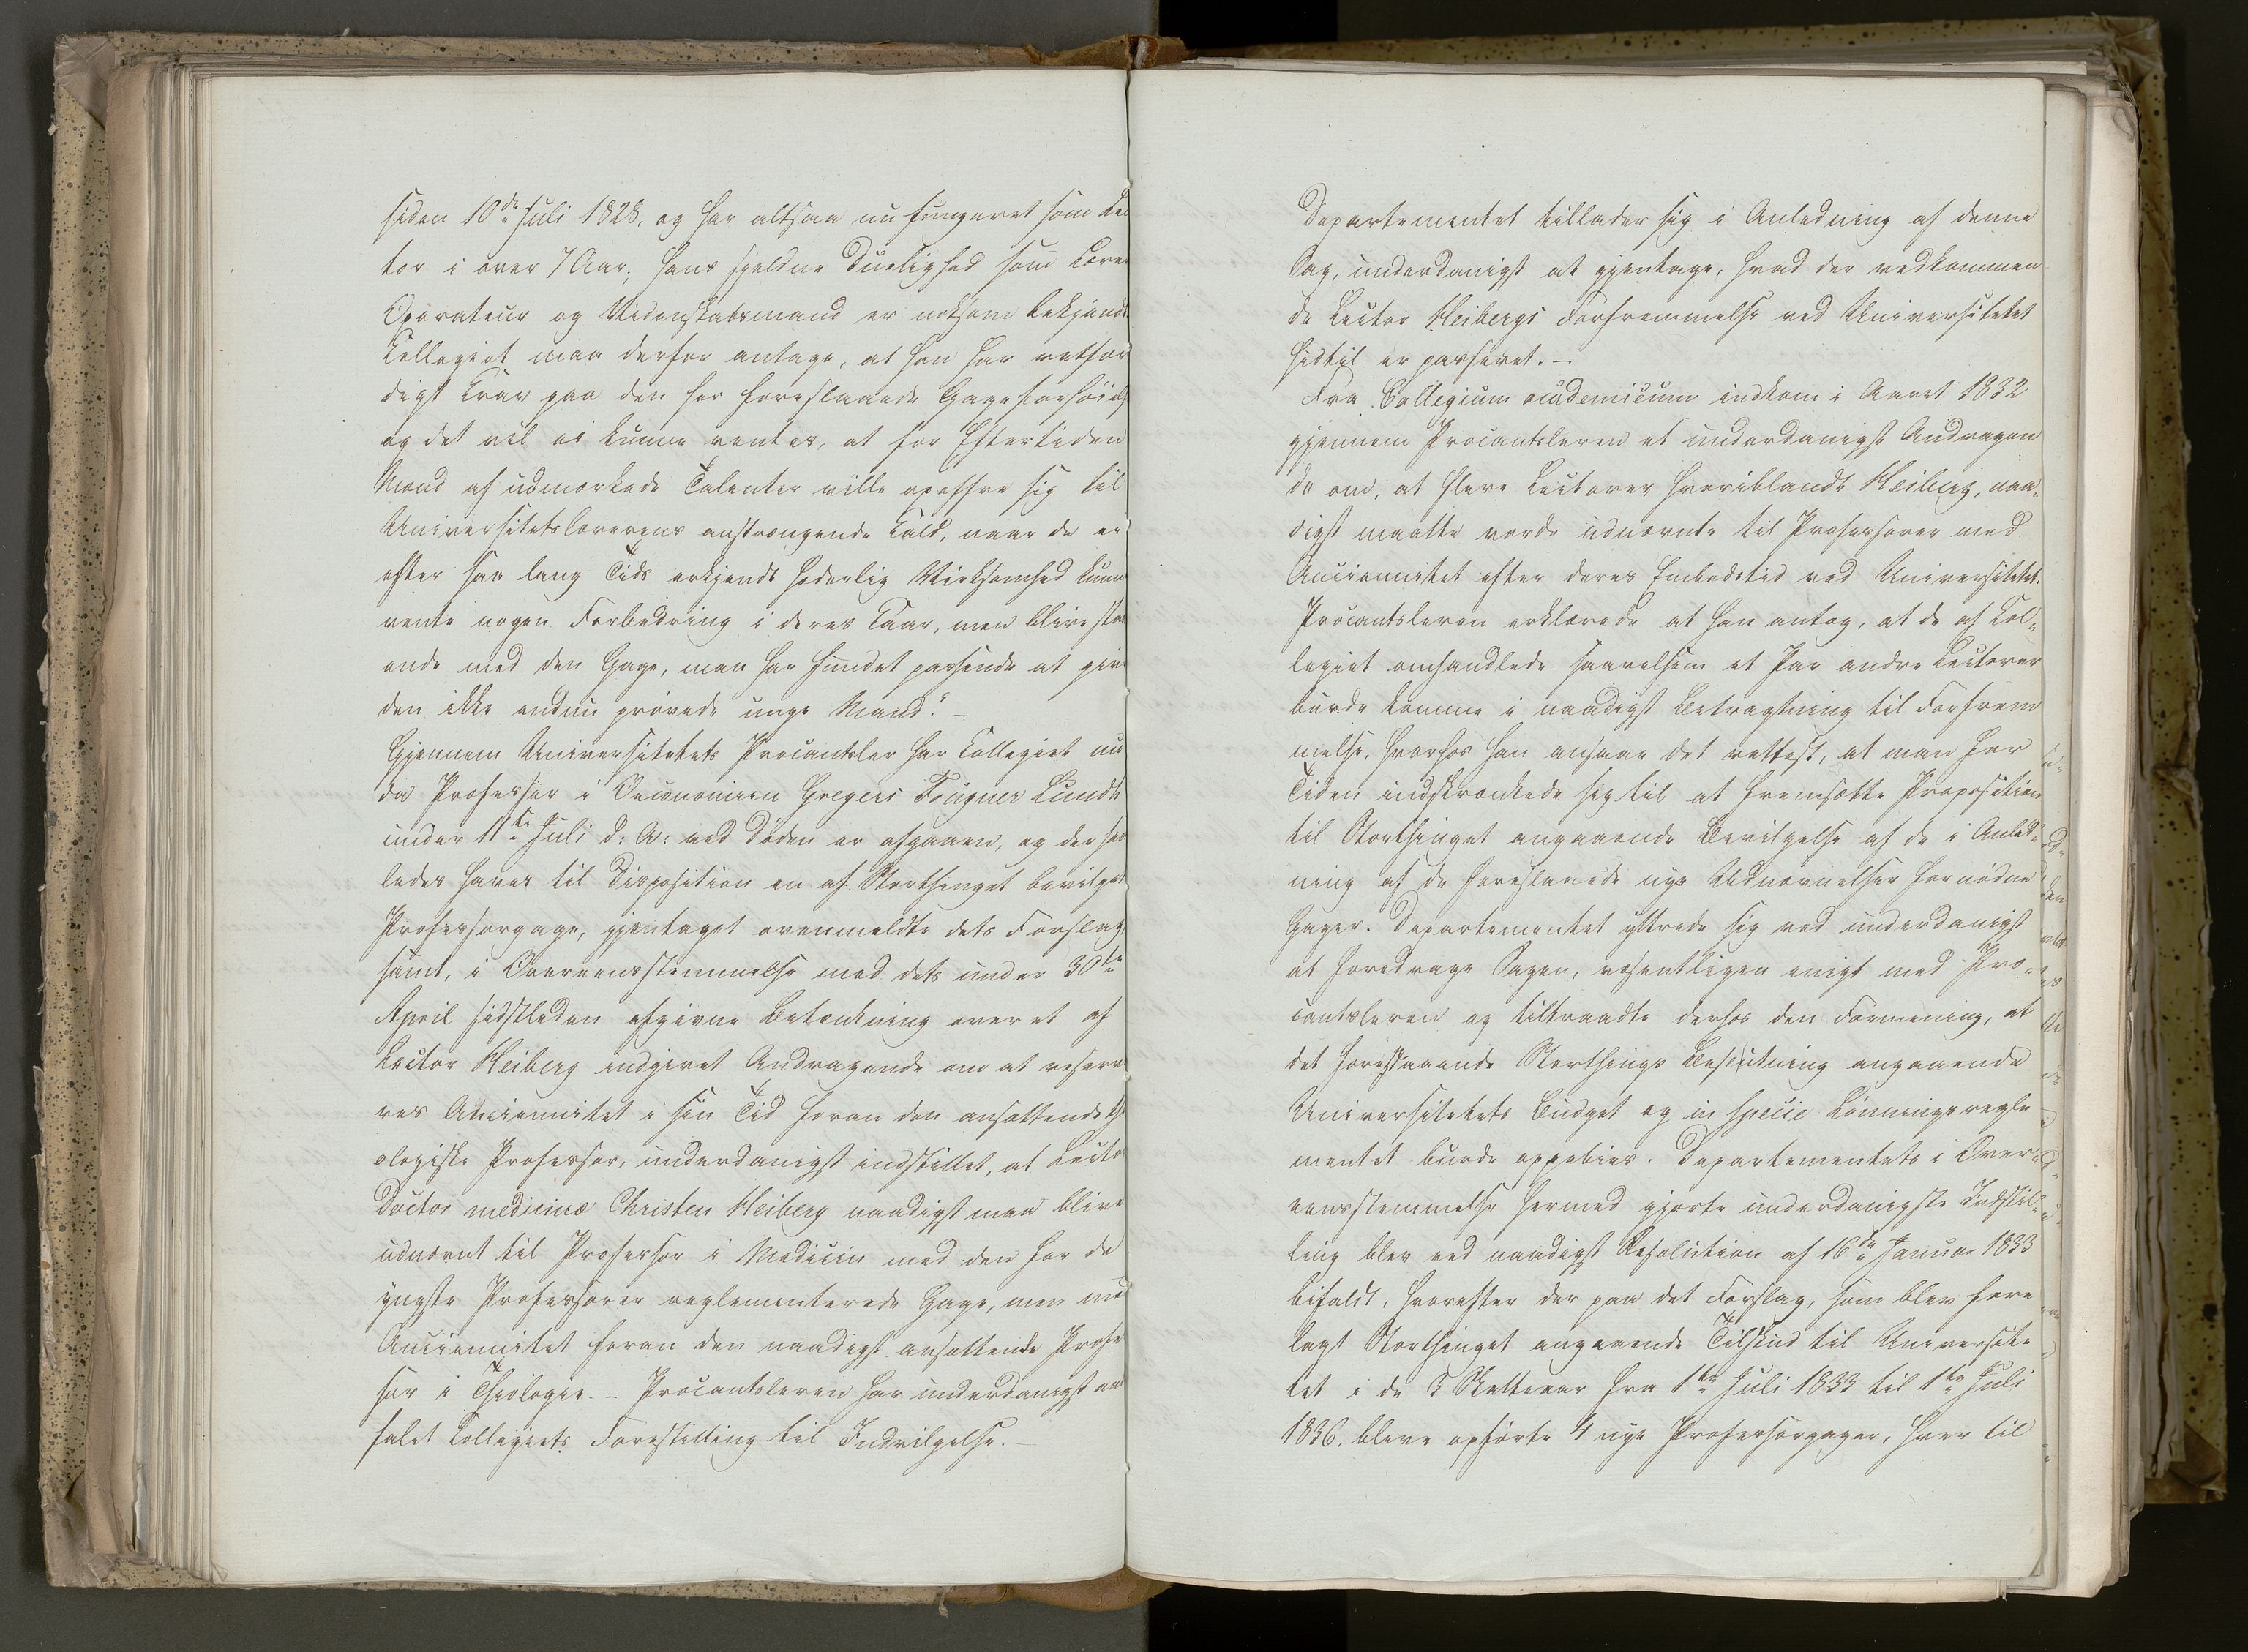 siden 10de Juli 1828, og har altsaa nu fungeret som Lec
tor i over 7 Aar; hans sjeldne Duelighed som Lærer
Operateur og Videnskabsmand er noksom bekjendt
Collegiet maa derfor antage, at han har retfær
digt Krav paa den her foreslaaede Gageforhøielse
og det vil ei kunne ventes, at for Eftertiden
Mænd af udmærkede Talenter ville opoffre sig til
Universitetslærerens anstrængende Kald, naar de ei
efter saa lang Tids erkjendt hæderlig Virksomhed kunne
vente nogen Forbedring i deres Kaar, men blive staa
ende med den Gage, man har fundet passende at give
den ikke endnu prøvede unge Mand." —
Gjennem Universitetets Procantsler har Collegiet nu
da Professor i Oeconomien Gregers Fougner Lundh
under 11te Juli d: A: ved Døden er afgaaen, og der saa
ledes haves til Disposition en af Storthinget bevilget
Professorgage, gjentaget ovenmeldte dets Forslag
samt, i Overeensstemmelse med dets under 30te
April sidstleden afgivne Betænkning over et af
Lector Heiberg indgivet Andragende om at reserve
res Anciennitet i sin Tid foran den ansættende th
eologiske Professor, underdanigst indstillet, at Lector
Doctor medicinæ Christen Heiberg naadigst maa blive
udnævnt til Professor i Medicin med den for de
yngste Professorer reglementerede Gage, men med
Anciennitet foran den naadigst ansættende Profes
sor i Theologie. — Procantsleren har underdanigst an
falet Collegiets Forestilling til Indvilgelse. —
Departementet tillader sig i Anledning af denne
Sag, underdanigst at gjentage, hvad der vedkommen
de Lector Heibergs Forfremmelse ved Universitetet
hidtil er passeret. —
Fra Collegium academicum indkom i Aaret 1832
gjennem Procantsleren et underdanigst Andragen
de om, at flere Lectorer hvoriblandt Heiberg, naa,
digst maatte vorde udnævnte til Professorer med
Anciennitet efter deres Embedstid ved Universitetet.
Procantsleren erklærede at han antog, at de af Col,
legiet omhandlede saavelsom et Par andre Lectorer
burde komme i naadigst Betragtning til Forfrem
melse, hvorhos han ansaae det rettest, at man for
Tiden indskrænkede sig til at fremsætte Proposition
til Storthinget angaaende Bevilgelse af de i Anled-
ning af de foreslaaede nye Udnævnelser fornødne
Gager. Departementet yttrede sig ved underdanigst
at foredrage Sagen, væsentligen enigt med Pro-
cantsleren og tiltraadte derhos den Formening, at
det forestaaende Storthings Beslutning angaaende
Universitetets Budget og in specie Lønningsregle
mentet burde oppebies. Departementets i Over-
eensstemmelse hermed gjorte underdanigste Indstil-
ling blev ved naadigst Resolution af 16de Januar 1833
bifaldt, hvorefter der paa det Forslag, som blev fore
lagt Storthinget angaaende Tilskud til Universite
tet i de 3 Statteaar fra 1ste Juli 1833 til 1ste Juli
1836, bleve opførte 4 nye Professorgager, hver til